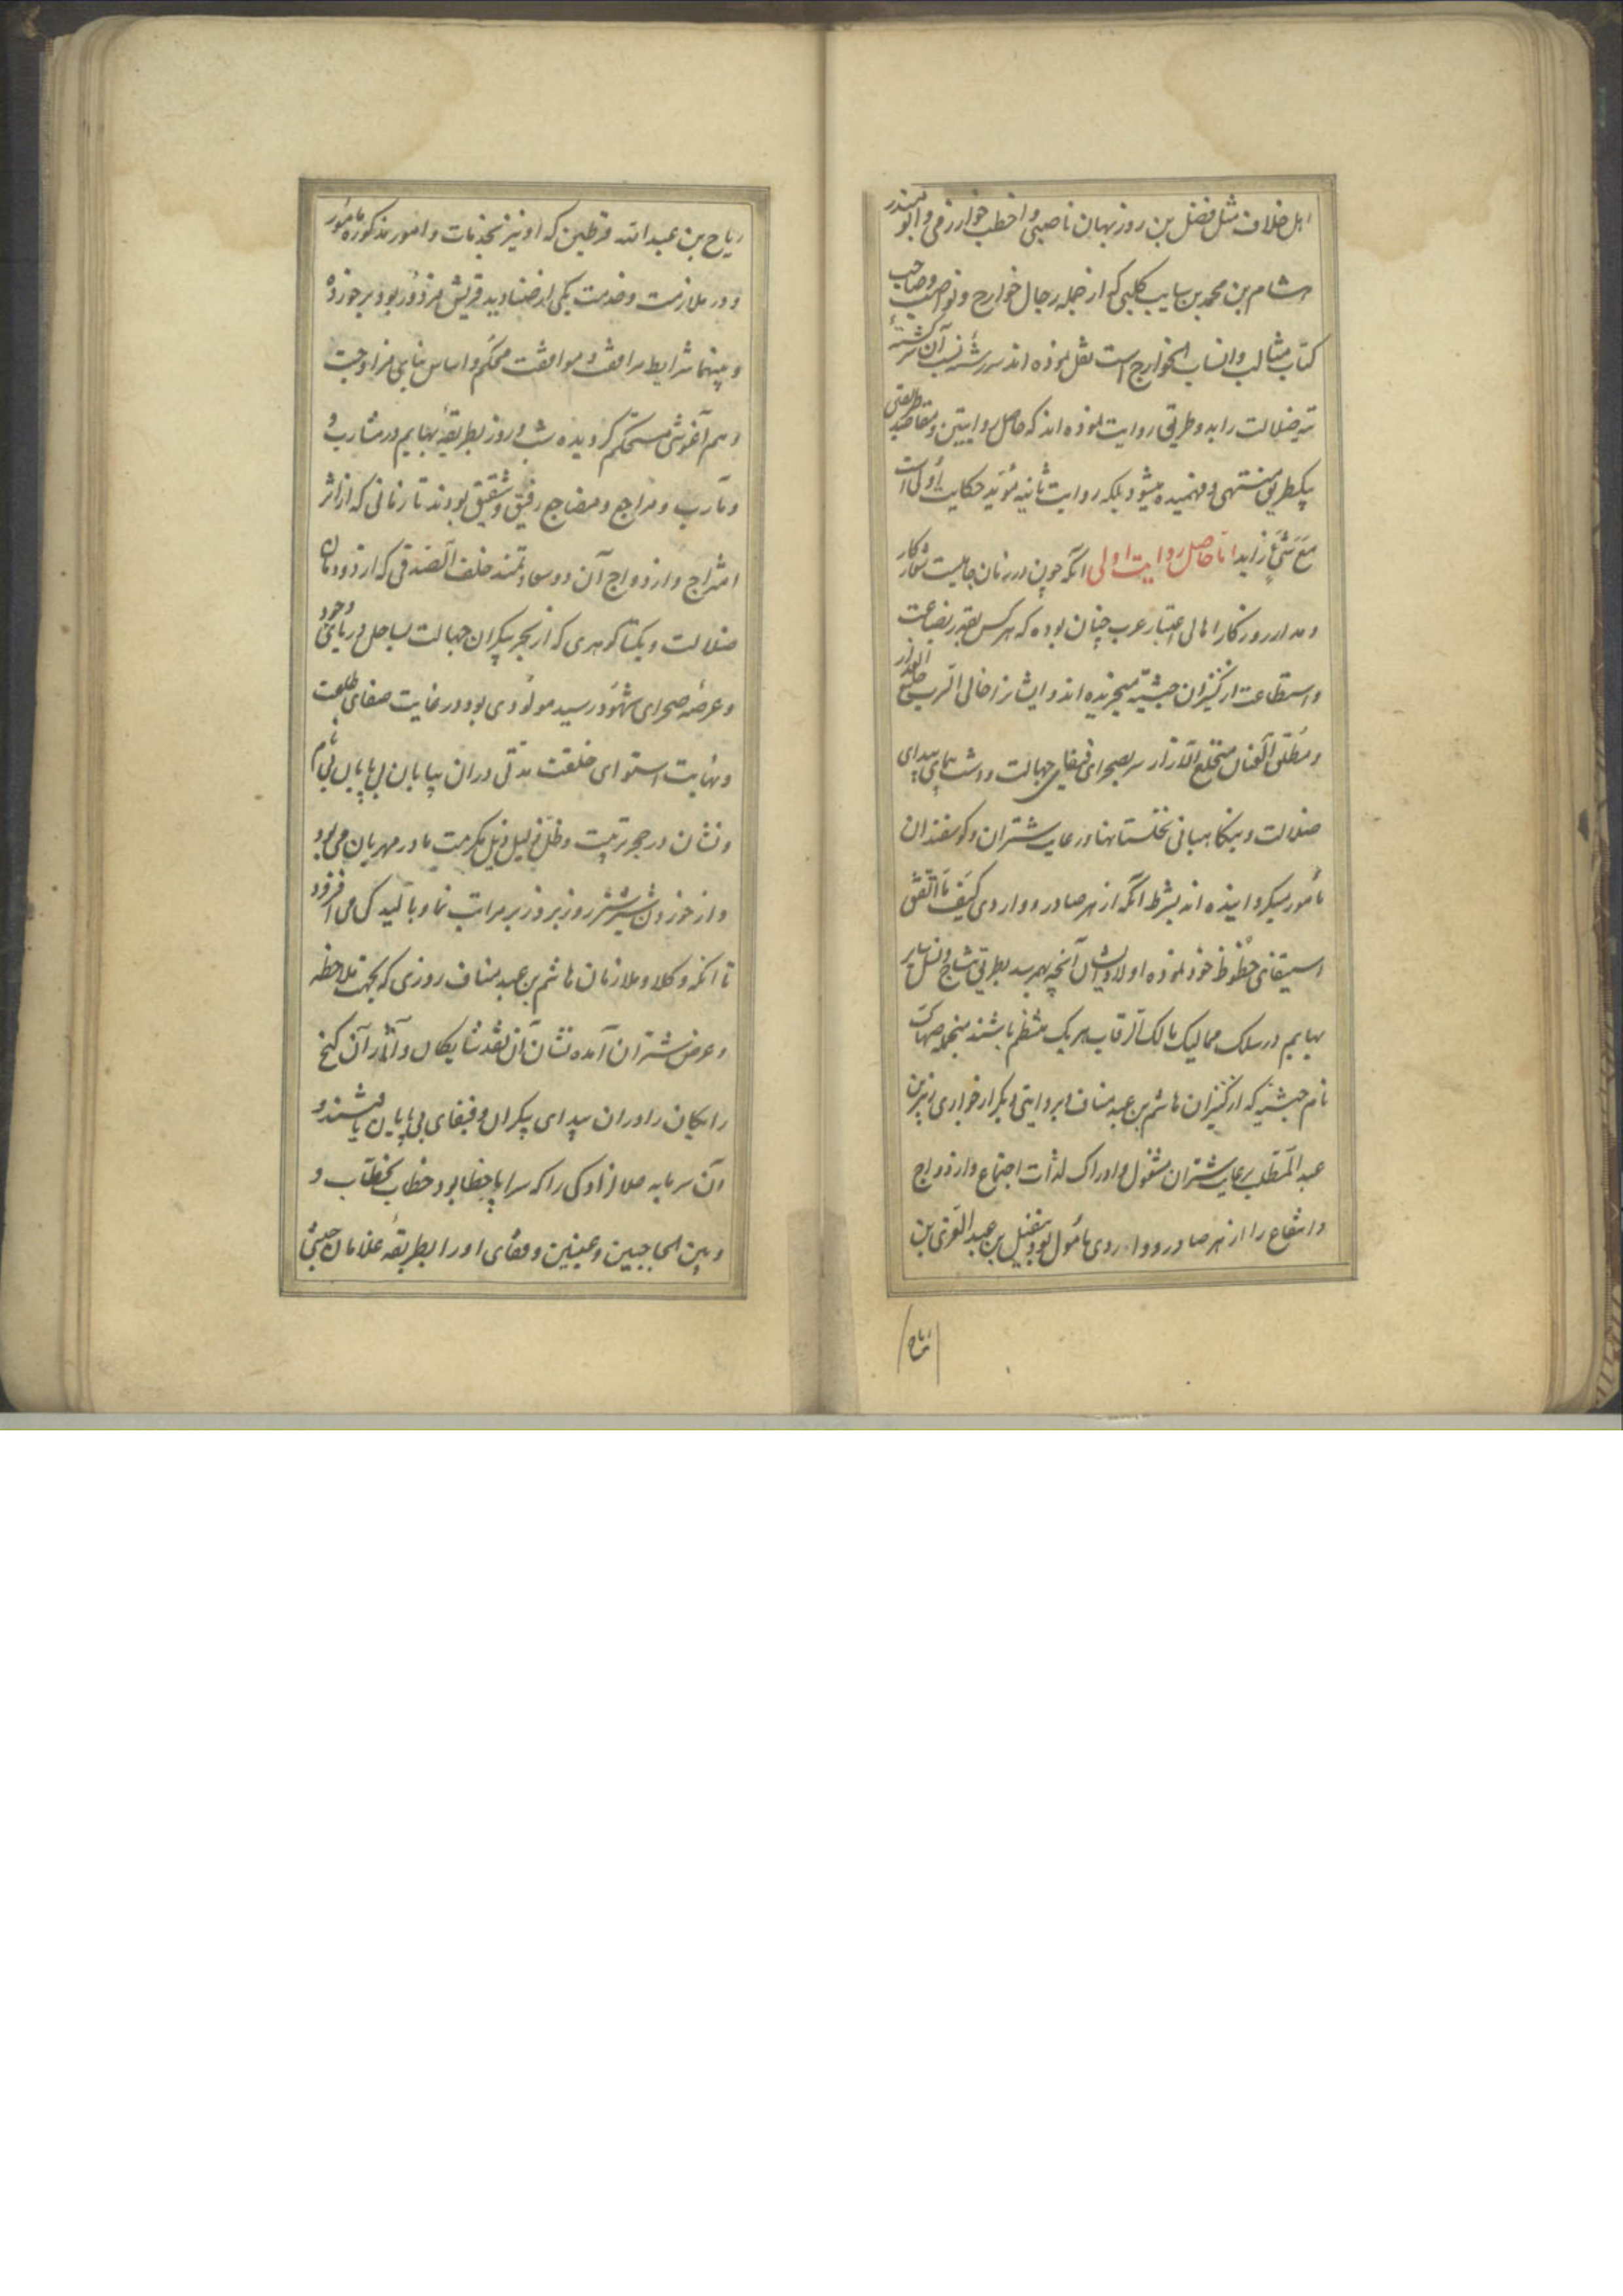 اهل خلاف مثل فضل بن روزبهان ناصبی و اخطب خوارزمی و ابو المنذر
هشام بن محمد بن سایب کلبی که از جمله رجال خوارج و نواصب و صاحب
کتاب مثالب و انساب الخوارج است نقل نموده اند سررشته نسب آن سرگشتهٔ
تیه ضلالت را بدو طریق روایت نموده اند که حاصل روایتین و مقاصد طریقتین
بیکطریق منتهی و فهمیده میشود بلکه روایت ثانیه مؤید حکایت اولی است
مع شیءٍ زاید اما حاصل روایت اولی آنکه چون در زمان جاهلیت شعار کار
و مدار روزکار اهالی اعتبار عرب چنان بوده که هر کس بقدر بضاعت
و استطاعت از کنیزان حبشیه میخریده اند و ایشانرا خالی السرب خلیع العذار
و مطلق العنان منخلع الازار سر بصحرای فیفای جهالت و دشت پیمای بیدای
ضلالت و بنکاهبانی نخلستانها و رعایت شتران و کوسفندان
مأمور میکردانیده اند بشرط آنکه از هر صادر و واردی کیف ما اتفق
استیفای حظوظ خود نموده اولاد ایشان آنچه بهم رسد بطریق نتاج و نسل سایر
بهایم در سلک ممالیک مالک الرقاب هر یک منتظم باشند منجمله صهاک
نام حبشیه که از کنیزان هاشم بن عبد مناف و بروایتی دیکر از جواری زبیر بن
عبد المطلب برعایت شتران مشغول و ادراک لذات اجتماع و ازدواج
و انتفاع را از هر صادر و واردی مأمول بود نفیل بن عبد العزی بن
ریاح
ریاح بن عبد الله قرط بن که او نیز بخدمات و امور مذکوره مامور
و در ملازمت و خدمت یکی از صنادید قریش مزدور بود برخورده
و بینهما شرایط مرافقت و موافقت محکم و اساس بنای مزاوجت
و هم آغوشی مستحکم کردیده شب و روز بطریقهٔ بهایم در مشارب و
و مآرب و مراجع و مضاجع رفیق و شفیق بودند تا زمانی که از اثر
امتزاج و ازدواج آن دو سعادتمند خلف الصدقی که از دودمان
ضلالت و یکتا کوهری که از بحر بیکران جهالت بساحل دریای وجود
و عرصهٔ صحرای شهود رسید مولودی بود در غایت صفای طلعت
و نهایت استوای خلقت مدتی در آن بیابان بی پایان بی نام
و نشان در حجر تربیت و ظل ظلیل ذیل مکرمت مادر مهربان می بود
و از خوردن شیر شتر روز بروز بر مراتب نما و بالیدکی می افزود
تا آنکه وکلا و ملازمان هاشم بن عبد مناف روزی که بجهت ملاحظه
و عرض شتران آمده نشان آن نقد شایکان و آثار آن کنج
رایکان را در آن بیدای بیکران و فیفای بی پایان یافتند و
آن سرمایه حلال زادکی را که سراپا خطا بود خطاب بخطاب و
و بین الحاجبین و عینین و قفای او را بطریقهٔ غلامان حبشی